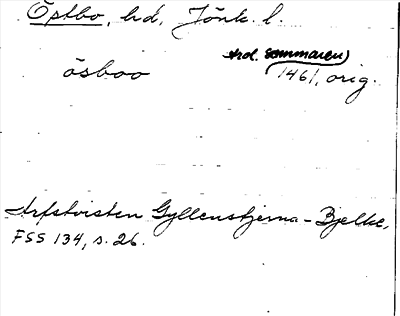 Östbo, hd, Jönk. l.
ösboo
(trol. sommaren)
1461, orig.
Arfstvisten Gyllenstjerna - Bjelke,
FSS 134, s. 26.